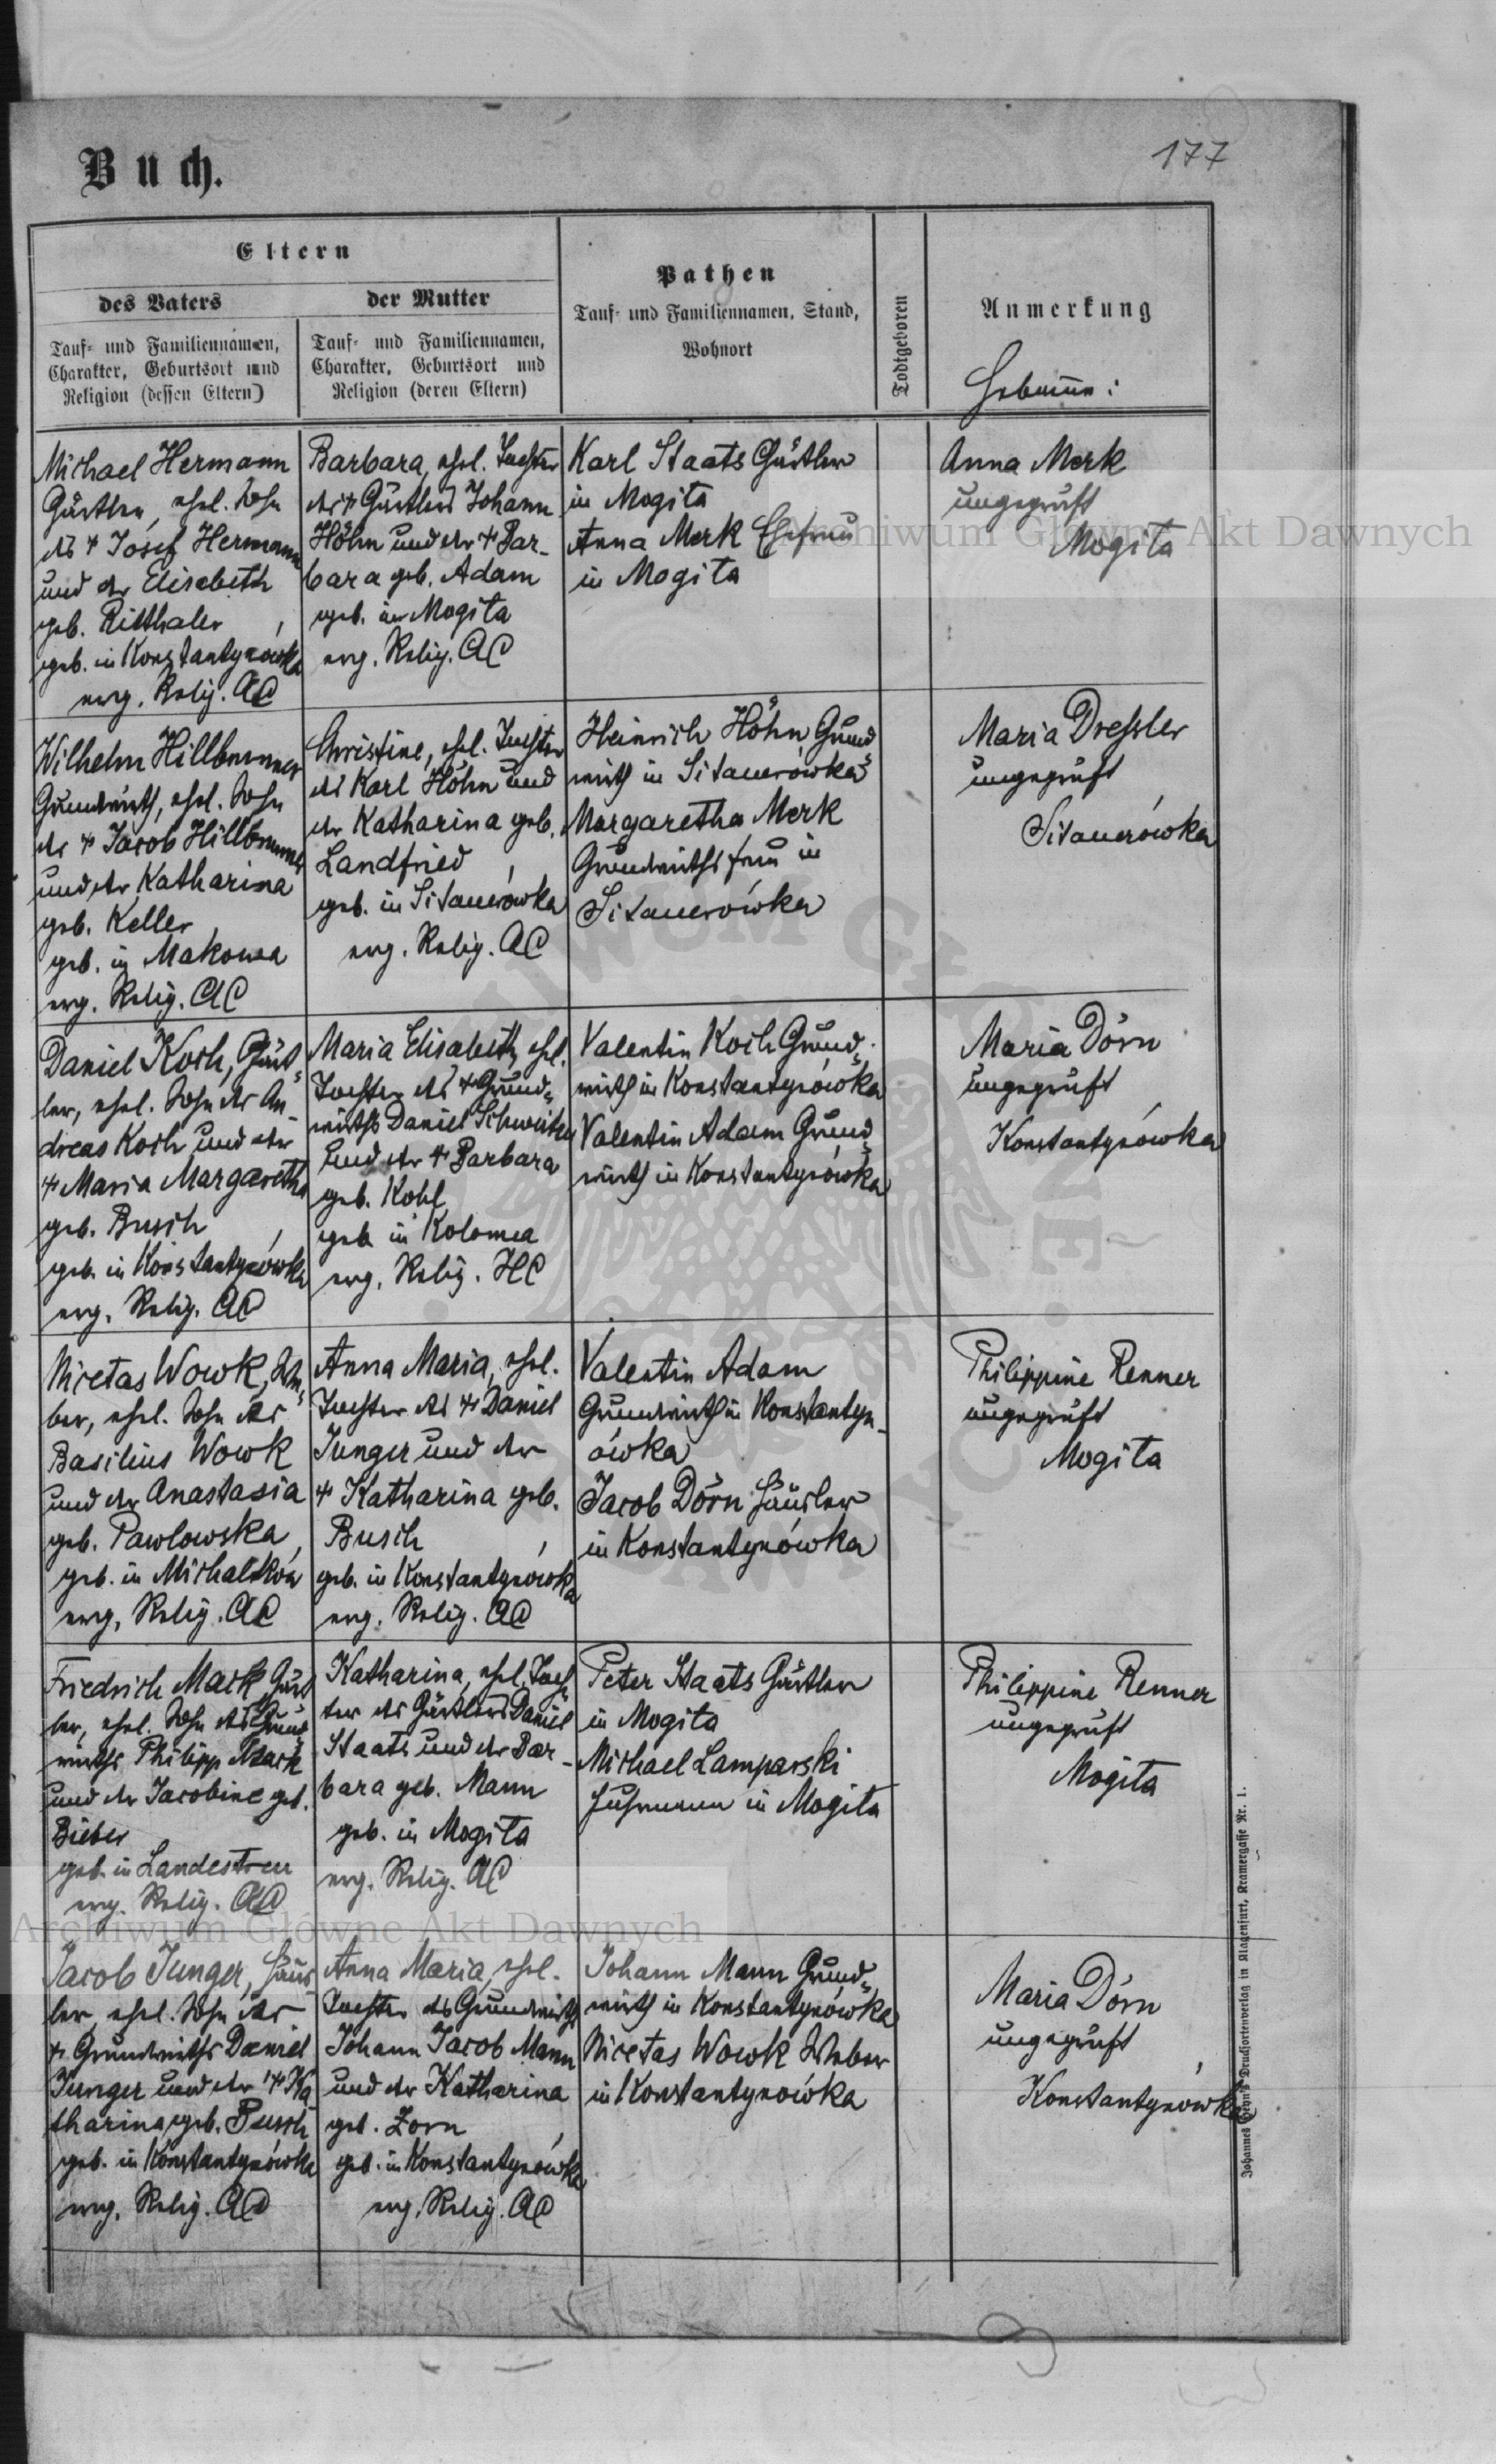 Buch.
177
Eltern
des Vaters
Tauf- und Familiennamen,
Charakter, Geburtsort und
Religion (dessen Eltern)
der Mutter
Tauf- und Familiennamen,
Charakter, Geburtsort und
Religion (deren Eltern)
Pathen
Tauf- und Familiennamen, Stand,
Wohnort
Todtgeboren
Anmerkung
Hebamme:
Michael Hermann
Gärtler, ehel. Sohn
des † Josef Hermann
und der Elisabeth
geb. Ritthaler
geb. in Konstantynówka
evg. Relig. AC
Barbara, ehel. Tochter
des † Gärtlers Johann
Höhn und der † Bar-
bara geb. Adam
geb. in Mogiła
evg. Relig. AC
Karl Staats Gärtler
in Mogiła
Anna Merk Ehefrau
in Mogiła
Anna Merk
ungeprüft
Mogiła
Wilhelm Hillbrunner
Grundwirth, ehel. Sohn
des † Jacob Hillbrunner
und der Katharina
geb. Keller
geb. in Makowa
evg. Relig. AC
Christine, ehel. Tochter
des Karl Höhn und
der Katharina geb.
Landfried
geb. in Sitauerówka
evg. Relig. AC
Heinrich Höhn Grund-
wirth in Sitauerówka
Margaretha Merk
Grundwirthsfrau in
Sitauerówka
Maria Dressler
ungeprüft
Sitauerówka
Daniel Koch, Gärt-
ler, ehel. Sohn des An-
dreas Koch und der
† Maria Margaretha
geb. Busch
geb. in Konstantynówka
evg. Relig. AC
Maria Elisabeth, ehel.
Tochter des † Grund-
wirths Daniel Schweitzer
und der † Barbara
geb. Kohl
geb. in Kolomea
evg. Relig. HC
Valentin Koch Grund-
wirth in Konstantynówka
Valentin Adam Grund-
wirth in Konstantynówka
Maria Dörn
ungeprüft
Konstantynówka
Nicetas Wowk, We-
ber, ehel. Sohn des
Basilius Wowk
und der Anastasia
geb. Pawlowska
geb. in Michałków
evg. Relig. AC
Anna Maria, ehel.
Tochter des † Daniel
Junger und der
† Katharina geb.
Busch
geb. in Konstantynówka
evg. Relig. AC
Valentin Adam
Grundwirth in Konstantyn-
ówka
Jacob Dörn Häusler
in Konstantynówka
Philippine Renner
ungeprüft
Mogiła
Friedrich Mack, Gärt-
ler, ehel. Sohn des Grund-
wirths Philipp Mack
und der Jacobine geb.
Bieber
geb. in Landestreu
evg. Relig. AC
Katharina, ehel. Toch-
ter des Gärtlers Daniel
Staats und der Bar-
bara geb. Mann
geb. in Mogiła
evg. Relig. AC
Peter Staats Gärtler
in Mogiła
Michael Lamparski
Fuhrmann in Mogiła
Philippine Renner
ungeprüft
Mogiła
Jacob Junger, Häus-
ler, ehel. Sohn des
† Grundwirths Daniel
Junger und der † Ka
tharina geb. Busch
geb. in Konstantynówka
evg. Relig. AC
Anna Maria, ehel.
Tochter des Grundwirths
Johann Jacob Mann
und der Katharina
geb. Zorn
geb. in Konstantynówka
evg. Relig. AC
Johann Mann Grund-
wirth in Konstantynówka
Nicetas Wowk Weber
in Konstantynówka
Maria Dörn
ungeprüft
Konstantynówka
Johannes Drucksortenverlag in Klagenfurt, Kramergasse Nr. 1.
Archiwum Główne Akt Dawnych
Archiwum Główne Akt Dawnych